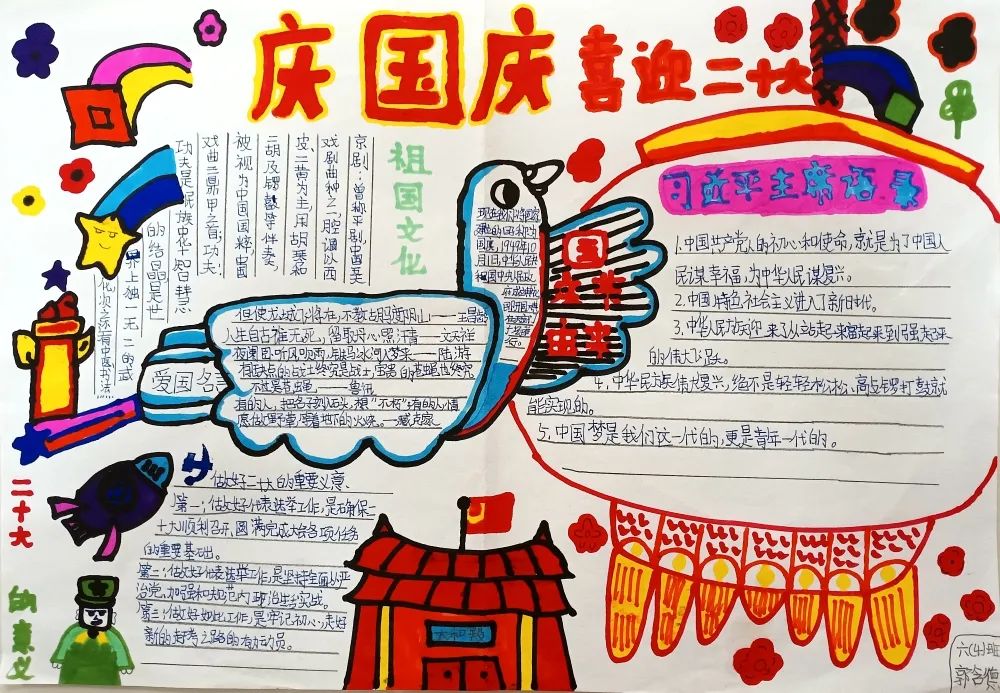 庆国庆
喜迎二十大
祖国文化
京剧：曾称平剧,中国五
戏剧曲种之一,腔调以西
皮、二黄为主,用胡琴和
二胡及锣鼓等伴奏,
被视为中国国粹,中国
戏曲三鼎甲之首,功夫：
功夫是民族中华智慧
的结晶是世
界上独一无二的武
化,次之还有中医书法
现在我们将国家
1949年10
月1日,中华人民
国庆节
由来
爱国名言
但使龙城飞将在,不教胡马度阴山——王昌龄
人生自古谁无死,留取丹心照汗青——文天祥
夜阑卧听风吹雨,铁马冰河入梦来——陆游
有缺点的战士终究是战士,完美的苍蝇也终究
不过是苍蝇——鲁迅
有的人,把名字刻入石头,想“不朽”;有的人,情
愿做野草,等着地下的火烧。——臧克家
习近平主席语录
1.中国共产党人的初心和使命,就是为了中国人
民谋幸福,为中华人民谋复兴。
2.中国特色社会主义进入了新时代。
3.中华人民族迎来了从站起来富起来到强起来
的伟大飞跃。
4.中华民族伟大复兴,绝不是轻轻松松、高战锣打鼓就
能实现的。
5.中国梦是我们这一代的,更是青年一代的。
二十大
的意义
做好二十大的重要义意：
第一：做好代表选举工作,是确保二
十大顺利召开,圆满完成大会各项任务
的重要基础。
第二：做好代表选举工作,是坚持全面从严
治党,加强和规范内政治生实战。
第三：做好如此工作,是牢记初心、走好
新的赶考之路的有动员。
太和殿
六(4)班